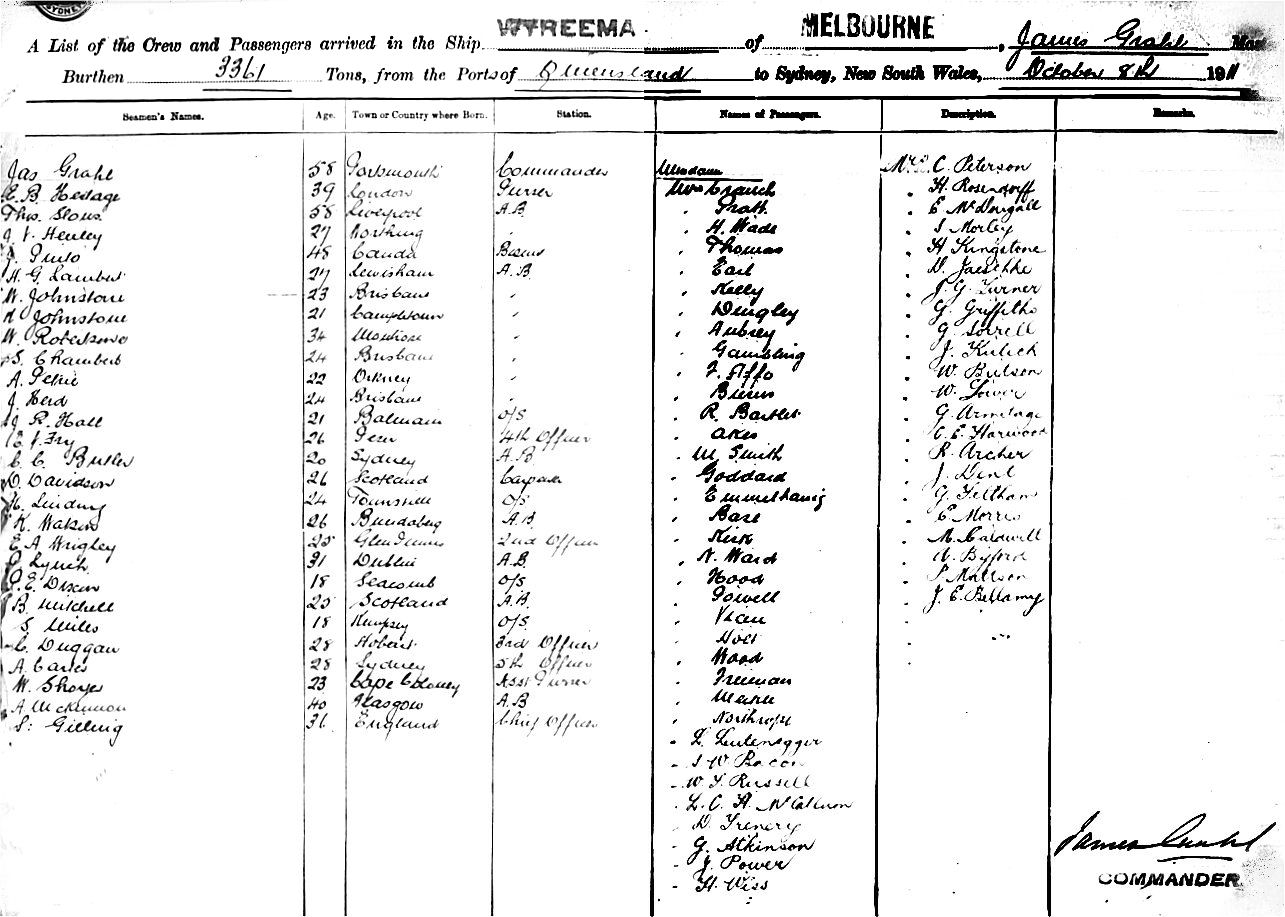 SYDNEY
WYREEMA
A List of the Crew and Passengers arrived in the Ship WYREEMA of MELBOURNE, James Grahl
Burthen 3361 Tons, from the Ports of Queensland to Sydney, New South Wales, October 8th 1911
Seamen's Names. Age. Town or Country where Born. Station. Names of Passengers. Description. Remarks.
Jas Grahl 58 Portsmouth Commander Mesdames Mrs C. Peterson
E. B. Hedage 39 London Purser Mrs Crauch " H. Rosendorff
Thos. Slous 58 Liverpool A.B. " Pratt " E McDougall
J. V. Henley 27 Worthing " " H. Wade " S Morley
J. Pinto 48 " Thomas " H Kingstone
H. G. Lambert 27 Lewisham A.B. " Earl " D. Jaeschke
W. Johnstone 23 Brisbane " " Kelly " J. G. Turner
Johnstone 21 Campbeltown " " Dingley " G. Griffiths
W. Robertson 34 Montrose " " Aubrey " G. Sorrell
S. Chambers 24 Brisbane " " Gambling " J.
A. Petrie 22 Orkney " " " W. Butson
J. Herd 24 Brisbane " " W.
J. R. Hall 21 Balmain O/S " R. Bartlet " G. Armitage
Fry 26 4th Officer " " C. E. Harwood
C. C. Butler 20 Sydney A.B " M. Smith " R. Archer
D. Davidson 26 Scotland " Goddard " J. Dent
H. Lindsay 24 Townsville O/S " " G. Feltham
K. 26 Bundaberg A.B " Base " E. Morris
E. A. Wrigley 25 Glen Innes 2nd Officer " Kirk " M. Caldwell
Lynch 31 Dublin A.B. " N. Ward " A. Byford
P. E. Dixon 18 Seacomb O/S " Hood " P. Mattson
B. Mitchell 25 Scotland A.B. " Powell " J. E. Bellamy
S. Miles 18 Kempsey O/S. " "
C. Duggan 28 Hobart 3rd Officer " Holt
A. 28 Sydney 5th Officer " Wood
W. 23 Cape Coloney Asst Purser " Freeman
A. McKinnon 40 Glasgow A.B "
S. Gilling 36 England Chief Officer " Northrope
" L. Leutenegger
" S W. Bacon
" W. J. Russell
" L. C. A. McCallum
" D. Trenery
" G. Atkinson
" J. Power
" H. Wiss
James Grahl
COMMANDER